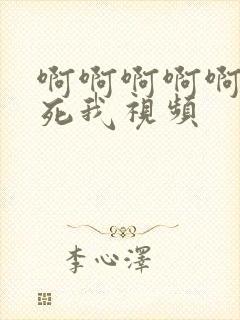 啊啊啊啊啊
死我視頻
李心澤